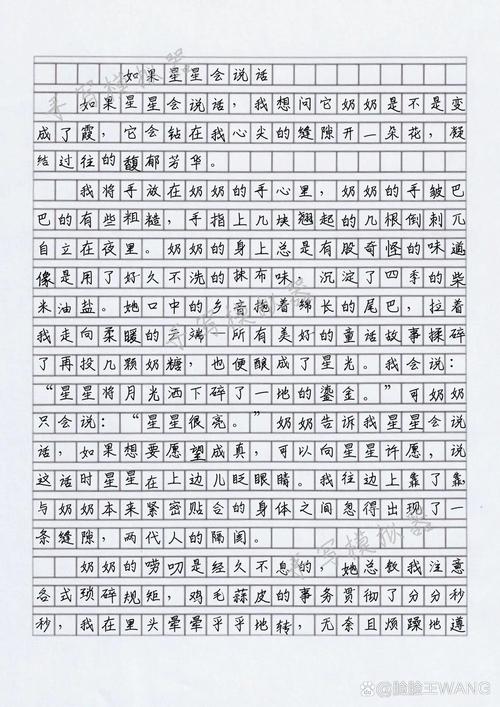 如果星星会说话
如果星星会说话，我想问它奶奶是不是变
成了霞，它会钻在我心尖的缝隙开一朵花，凝
结过往的馥郁芳华。
我将手放在奶奶的手心里，奶奶的手皱巴
巴的有些粗糙，手指上几块翘起的几根倒刺兀
自立在夜里。奶奶的身上总是有股奇怪的味道
像是用了好久不洗的抹布味，沉淀了四季的柴
米油盐。她口中的乡音拖着绵长的尾巴，拉着
我走向柔暖的云端，所有美好的童话故事揉碎
了再投几颗奶糖，也便酿成了星光。我会说：
“星星将月光洒下碎了一地的鎏金。”可奶奶
只会说：“星星很亮。”奶奶告诉我星星会说
话，如果想要愿望成真，可以向星星许愿，说
这话时星星在上边儿眨眼睛。我往边上靠了靠，
与奶奶本来紧密贴合的身体之间忽得出现了一
条缝隙，两代人的隔阂。
奶奶的唠叨是经久不息的，她总叙我注意
各式琐碎规矩，鸡毛蒜皮的事务贯彻了分分秒
秒，我在里头晕晕乎乎地转，无奈且烦躁地遵
手写模拟器
手写模拟器
手写模拟器
@脸脸王WANG